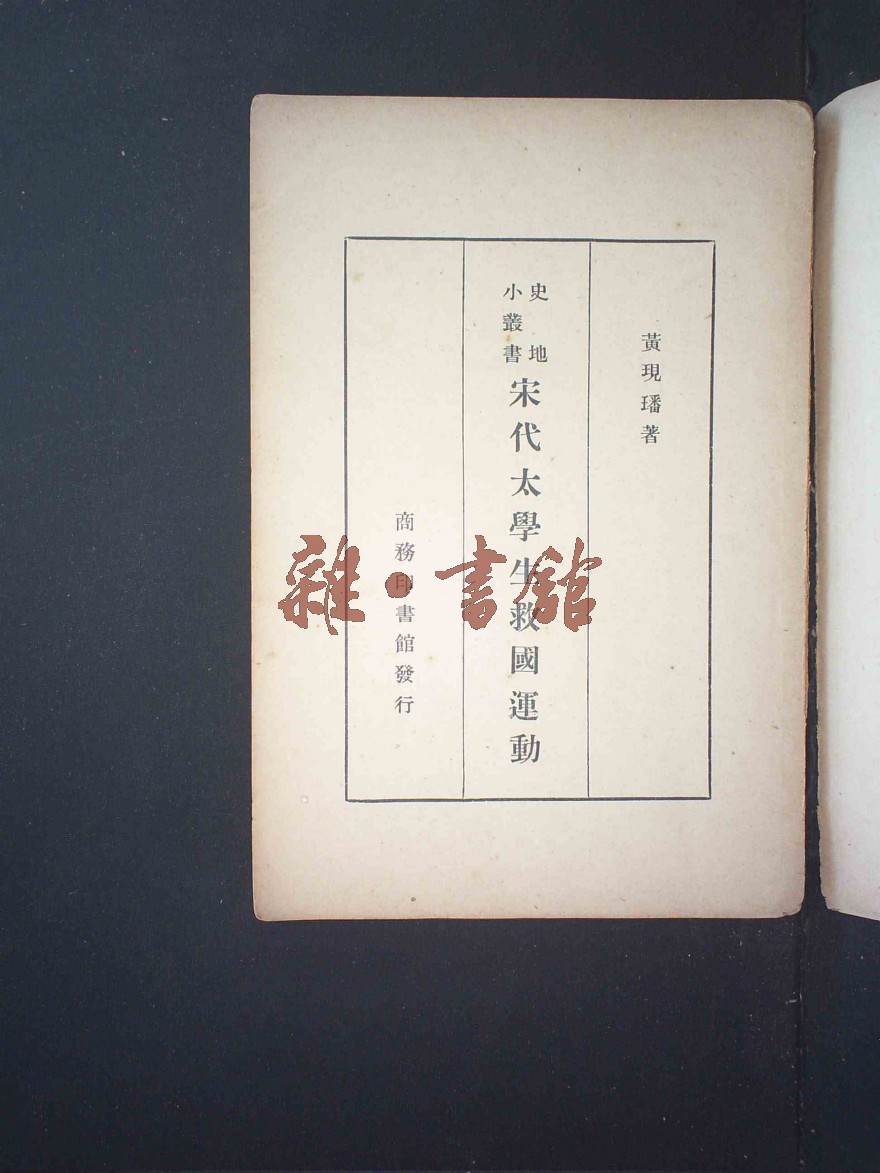 黃現璠著
史地
小叢書
宋代太學生救國運動
商務印書館發行
雜·書館